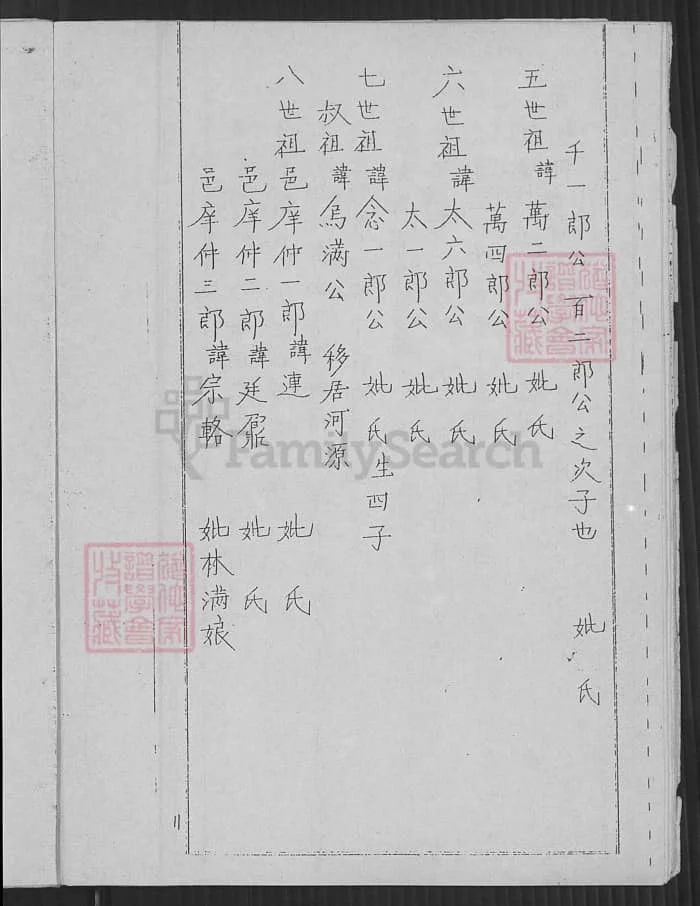 千一郎公 百二郎公之次子也 妣氏
五世祖諱萬二郎公 妣氏
萬四郎公 妣氏
六世祖諱太六郎公 妣氏
太一郎公 妣氏
七世祖諱念一郎公 妣氏生四子
叔祖諱烏滿公 移居河源
八世祖邑庠仲一郎諱連 妣氏
邑庠仲二郎諱廷 妣氏
邑庠仲三郎諱宗輅 妣林滿娘
FamilySearch
11